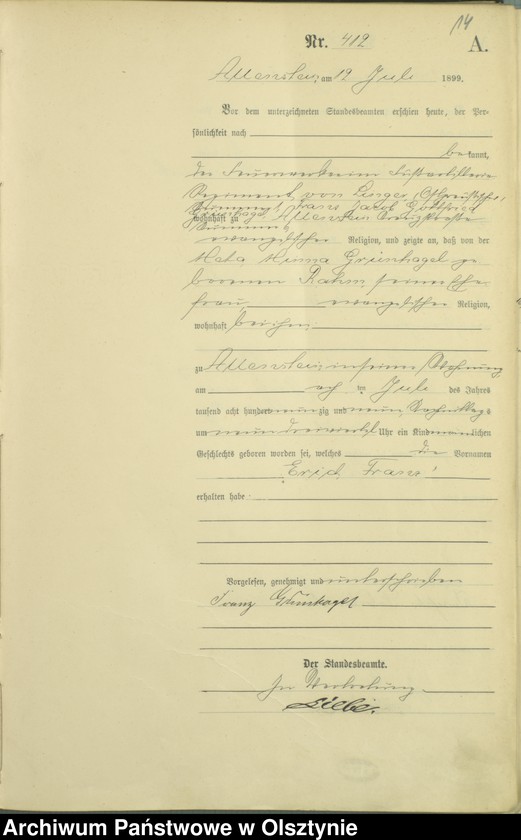 14
Nr. 412
A.
Allenstein, am 12 Juli 1899.
Vor dem unterzeichneten Standesbeamten erschien heute, der Per-
sönlichkeit nach
bekannt,
der Feuerwerker im Fußartillerie
Regiment von Linger (Ostpreußisches)
Franz Jacob Gottfried
Grünhagel
wohnhaft zu Allenstein
evangelischer Religion, und zeigte an, daß von der
Meta Minna Grünhagel ge
borenen Rahm seiner Ehe
frau evangelischer Religion,
wohnhaft bei ihm
zu Allenstein in seiner Wohnung
am ten Juli des Jahres
tausend acht hundert neun zig und neun Vormittags
um neun dreiviertel Uhr ein Kind männlichen
Geschlechts geboren worden sei, welches die Vornamen
Erich Franz
erhalten habe
Vorgelesen, genehmigt und unterschrieben
Franz Grünhagel
Der Standesbeamte.
In Vertretung
Archiwum Państwowe w Olsztynie